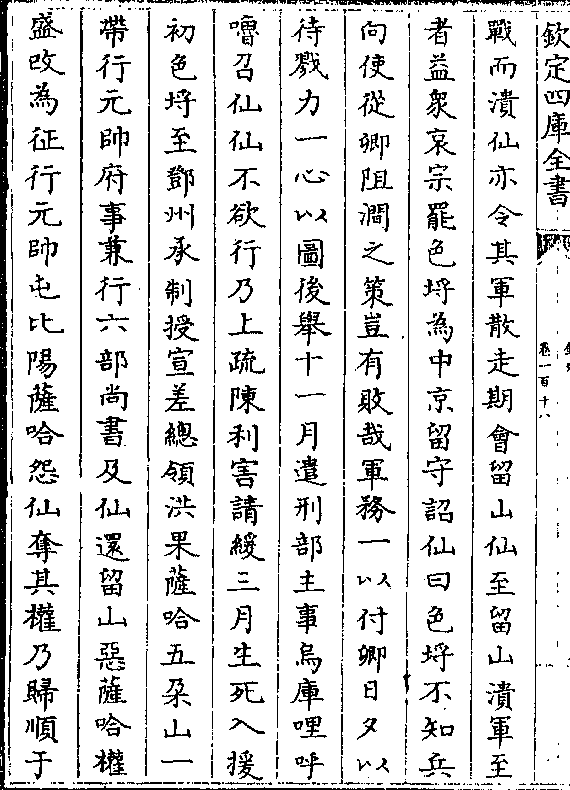 欽定四庫全書
卷一百十八
戰而潰仙亦令其軍散走期會留山仙至留山潰軍至
者益衆哀宗罷色埒為中京留守詔仙曰色埒不知兵
向使從卿阻澗之策豈有敗哉軍務一以付卿日夕以
待戮力一心以圖後舉十一月遣刑部主事烏庫哩呼
嚕召仙仙不欲行乃上疏陳利害請緩三月生死入援
初色埒至鄧州承制授宣差總領洪果薩哈五朶山一
帶行元帥府事兼行六部尚書及仙還留山惡薩哈權
盛改為征行元帥屯比陽薩哈怨仙奪其權乃歸順于